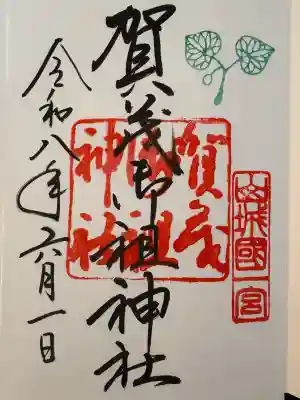 山城國一宮
賀茂御祖神社
賀茂御祖神社
令和八年六月一日